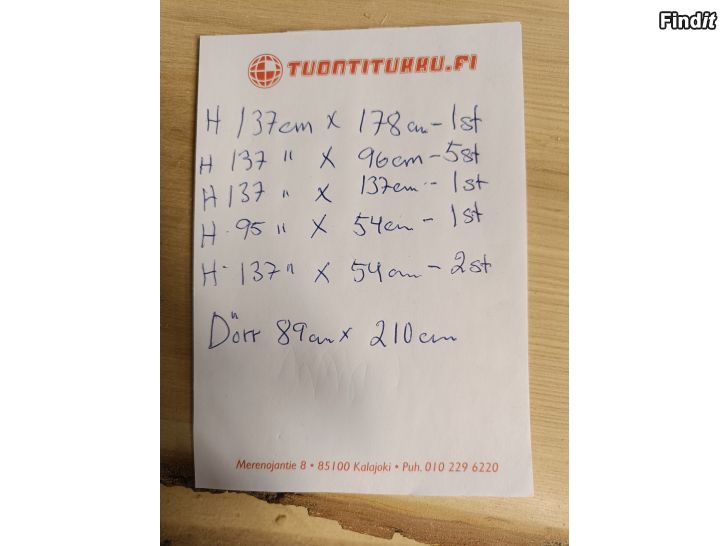 Findit
TUONTITUKKU.FI
H 137cm x 178cm - 1st
H 137 " x 96cm - 5st
H 137 " x 137cm - 1st
H 95 " x 54cm - 1st
H 137 " x 54cm - 2st
Dörr 89cm x 210cm
Merenojantie 8 • 85100 Kalajoki • Puh. 010 229 6220